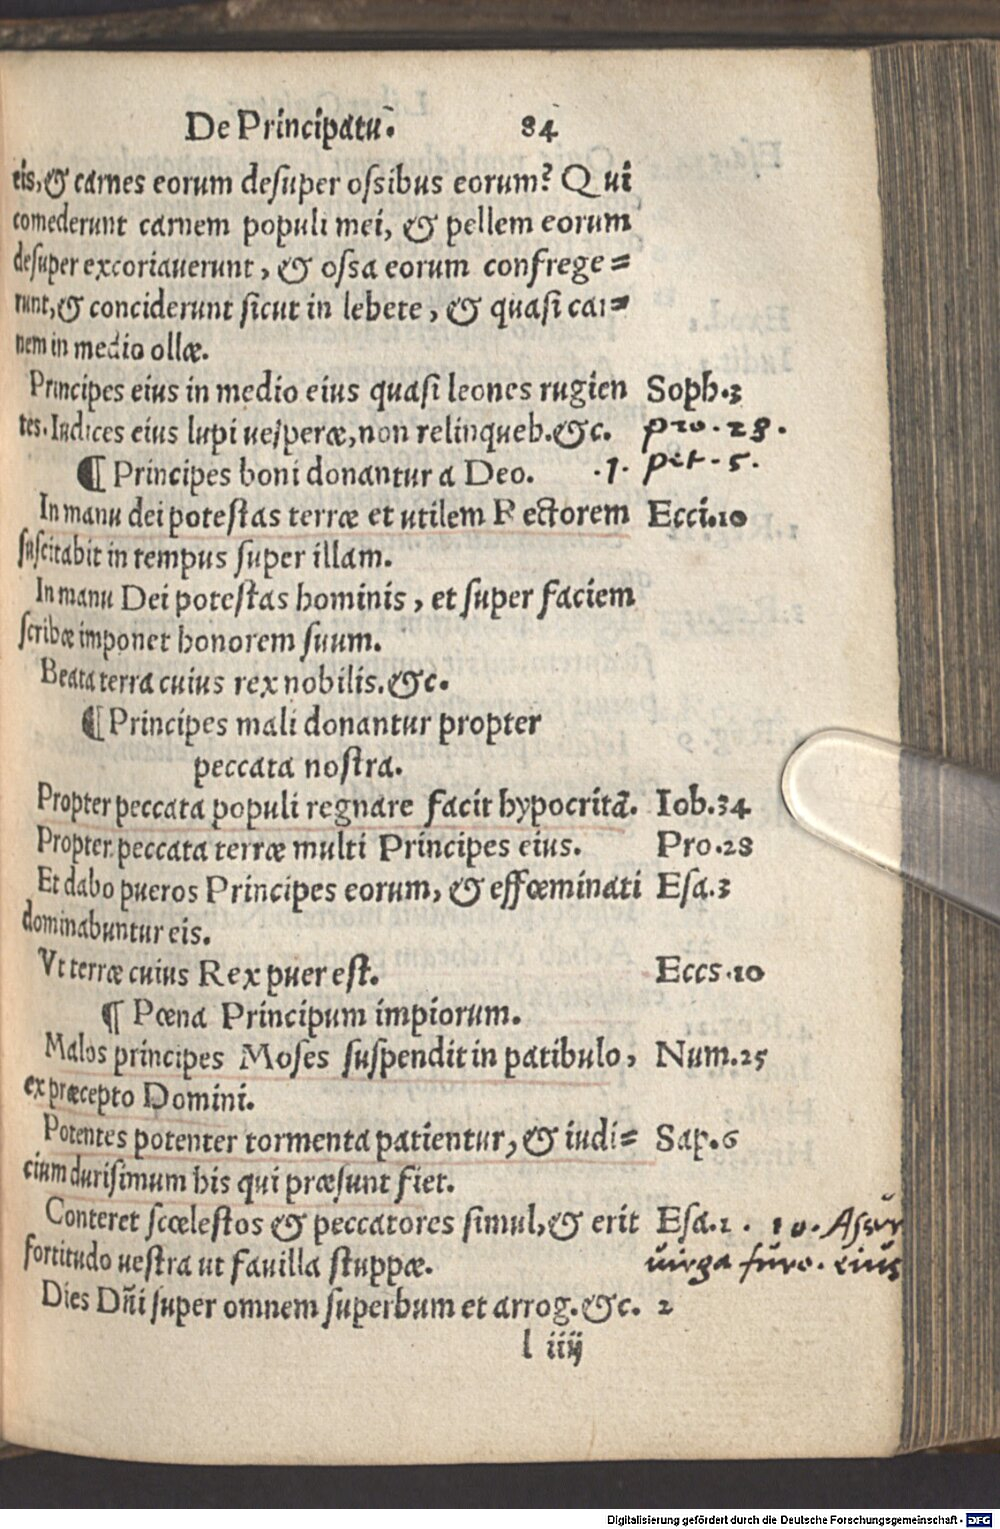 De Principatū. 84
eis, & carnes eorum desuper ossibus eorum? Qui
comederunt carnem populi mei, & pellem eorum
desuper excoriauerunt, & ossa eorum confrege=
runt, & conciderunt sicut in lebete, & quasi car=
nem in medio ollæ.
Principes eius in medio eius quasi leones rugien Soph.3
tes. Iudices eius lupi uesperæ, non relinqueb. &c. pro. 28.
¶ Principes boni donantur a Deo. .1. pet. 5.
In manu dei potestas terræ et utilem Rectorem Ecci.10
suscitabit in tempus super illam.
In manu Dei potestas hominis, et super faciem
scribæ imponet honorem suum.
Beata terra cuius rex nobilis. &c.
¶ Principes mali donantur propter
peccata nostra.
Propter peccata populi regnare facit hypocritā. Iob.34
Propter peccata terræ multi Principes eius. Pro.28
Et dabo pueros Principes eorum, & effœminati Esa.3
dominabuntur eis.
Vt terræ cuius Rex puer est. Eccs.10
¶ Pœna Principum impiorum.
Malos principes Moses suspendit in patibulo, Num.25
ex præcepto Domini.
Potentes potenter tormenta patientur, & iudi= Sap.6
cium durisimum his qui præsunt fiet.
Conteret scœlestos & peccatores simul, & erit Esa.1 . 10. Assur
fortitudo uestra ut fauilla stuppæ. uirga furo. eius
Dies Dñi super omnem superbum et arrog. &c. 2
l iiij
Digitalisierung gefördert durch die Deutsche Forschungsgemeinschaft - DFG